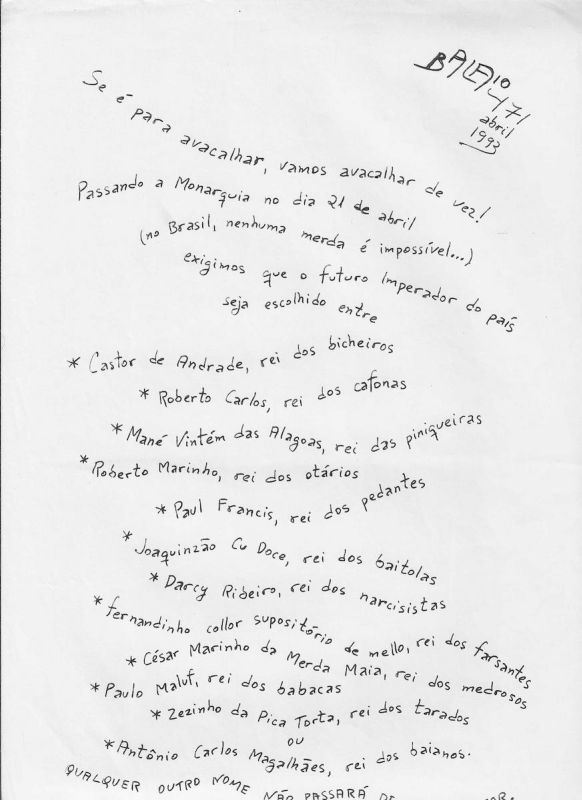 BALAIO
471
abril
1993
Se é para avacalhar, vamos avacalhar de vez!
Passando a Monarquia no dia 21 de abril
(no Brasil, nenhuma merda é impossível...)
exigimos que o futuro Imperador do país
seja escolhido entre
* Castor de Andrade, rei dos bicheiros
* Roberto Carlos, rei dos cafonas
* Mané Vintém das Alagoas, rei das piniqueiras
* Roberto Marinho, rei dos otários
* Paul Francis, rei dos pedantes
* Joaquinzão Cu Doce, rei dos baitolas
* Darcy Ribeiro, rei dos narcisistas
* fernandinho collor supositório de mello, rei dos farsantes
* César Marinho da Merda Maia, rei dos medrosos
* Paulo Maluf, rei dos babacas
* Zezinho da Pica Torta, rei dos tarados
ou
* Antônio Carlos Magalhães, rei dos baianos.
QUALQUER OUTRO NOME NÃO PASSARÁ